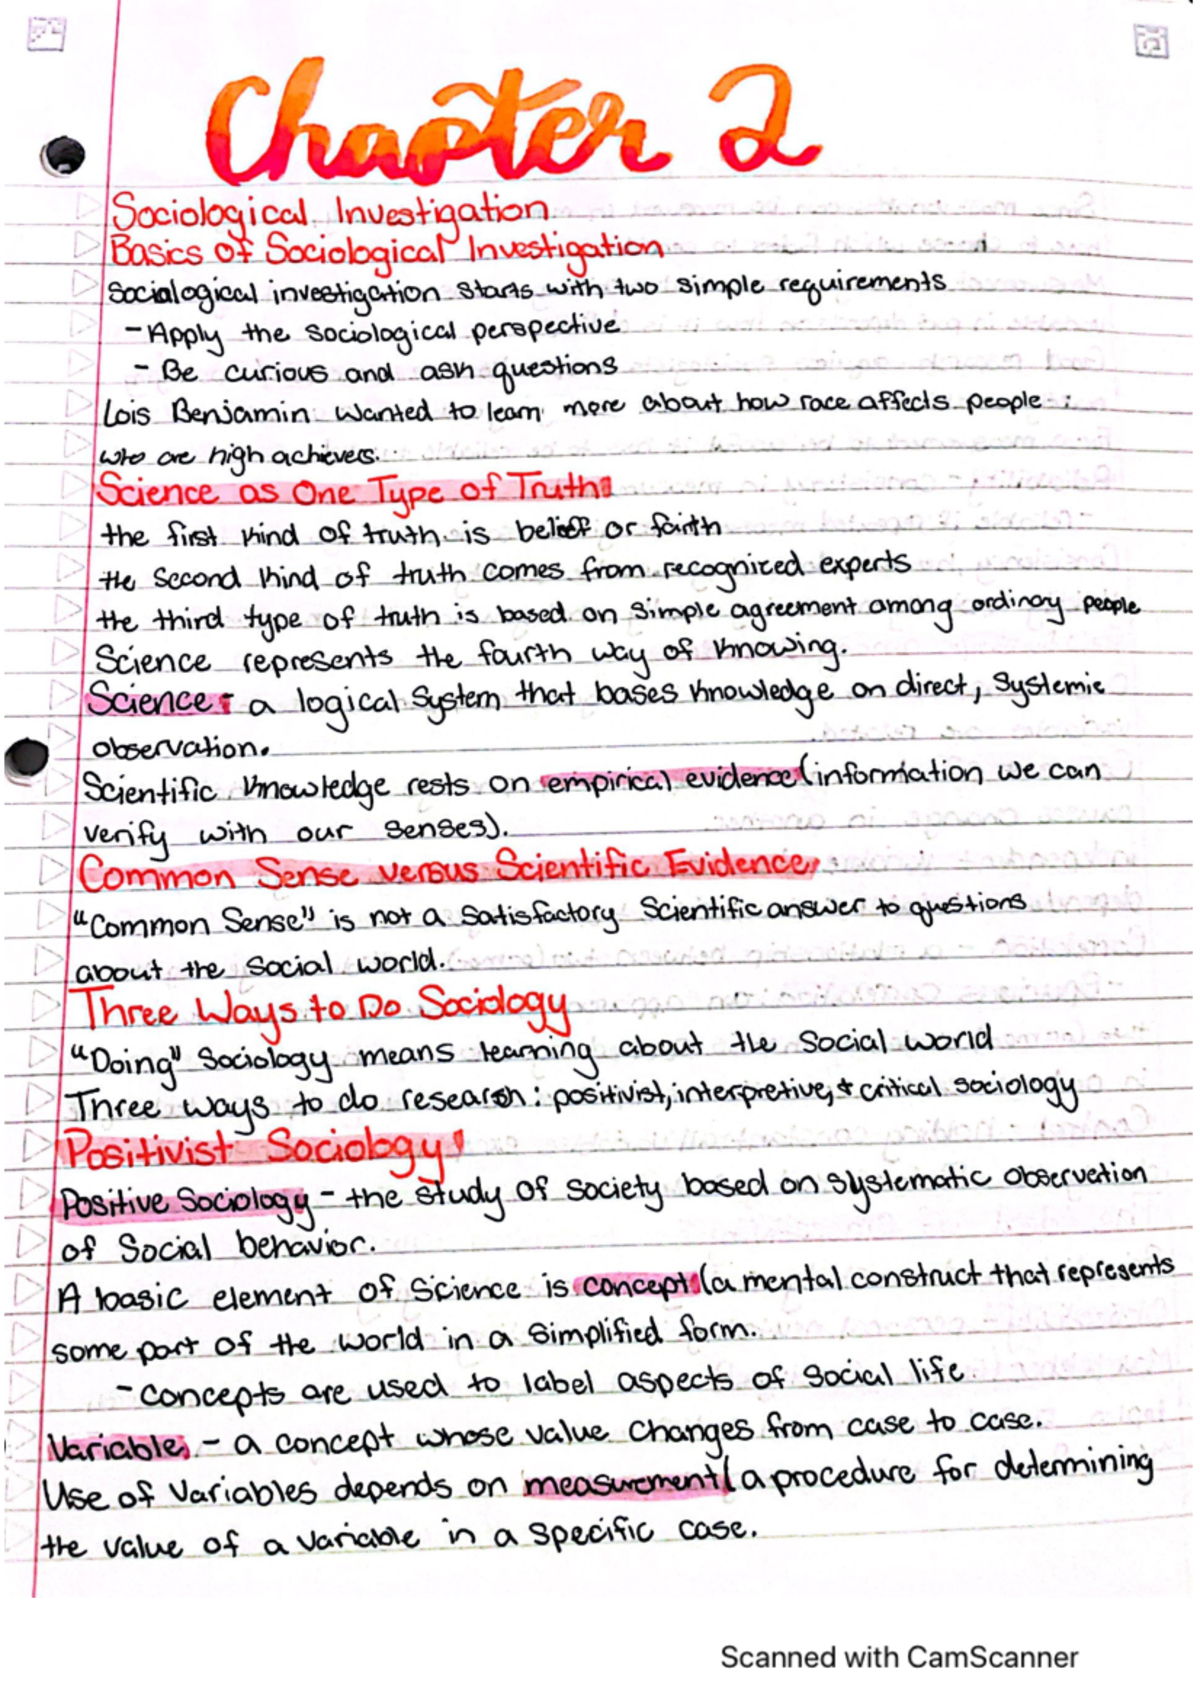 Chapter 2
Sociological Investigation
Basics of Sociological Investigation
Sociological investigation starts with two simple requirements
- Apply the sociological perspective
- Be curious and ask questions
Lois Benjamin wanted to learn more about how race affects people
who are high achievers.
Science as One Type of Truth
the first kind of truth is belief or faith
the second kind of truth comes from recogniced experts
the third type of truth is based on simple agreement among ordinary people
Science represents the fourth way of knowing.
Science - a logical system that bases knowledge on direct, systemic
observation.
Scientific knowledge rests on empirical evidence (information we can
verify with our senses).
Common Sense versus Scientific Evidence
"Common Sense" is not a satisfactory scientific answer to questions
about the social world.
Three Ways to Do Sociology
"Doing" sociology means learning about the social world
Three ways to do research: positivist, interpretive, & critical sociology
Positivist Sociology
Positive Sociology - the study of society based on systematic observation
of social behavior.
A basic element of science is concept (a mental construct that represents
some part of the world in a simplified form.
- concepts are used to label aspects of social life
Variables - a concept whose value changes from case to case.
Use of variables depends on measurement (a procedure for determining
the value of a variable in a specific case.
Scanned with CamScanner